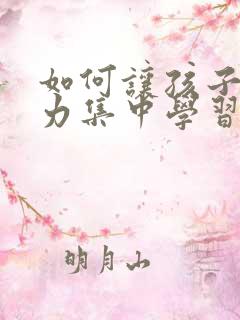 如何讓孩子
力集中學習
明月山